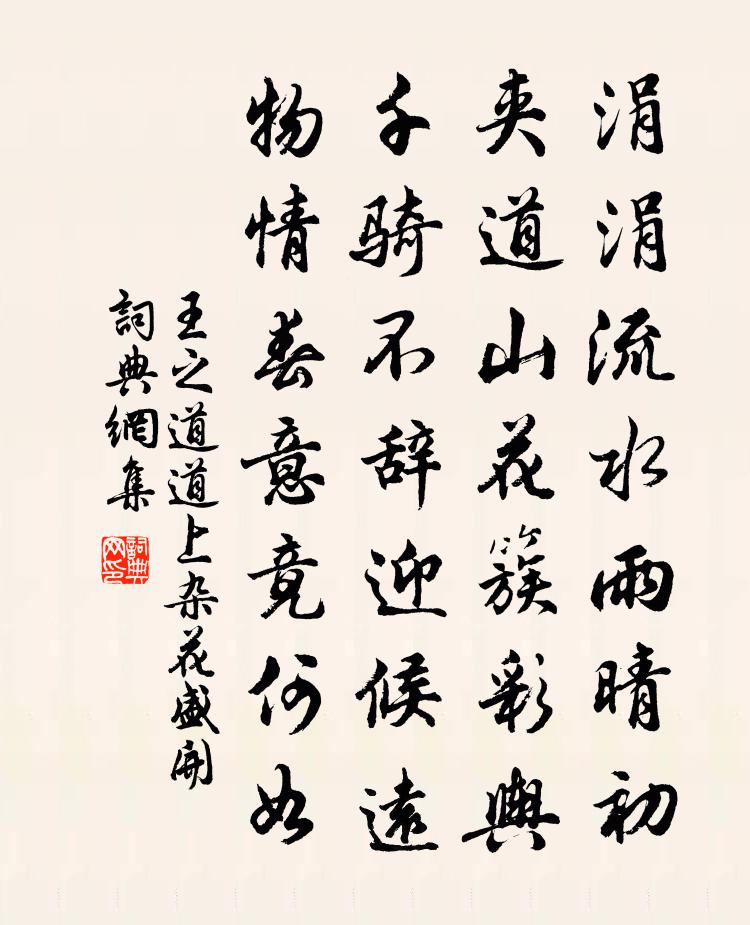 涓涓流水雨晴初
夹道山花簇彩輿
千骑不辞迎候遠
物情春意竟何如
王之道道上杂花盛開
詞典網集
詞典网印